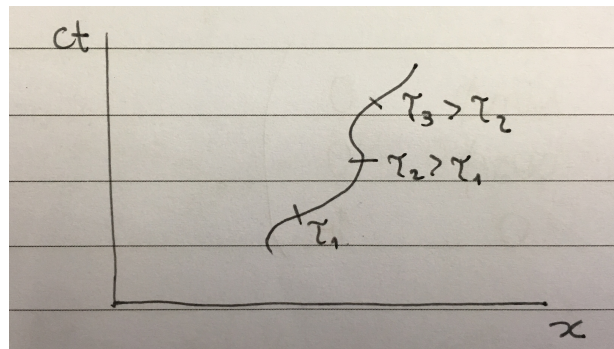 ct
τ₃ > τ₂
τ₂ > τ₁
τ₁
x